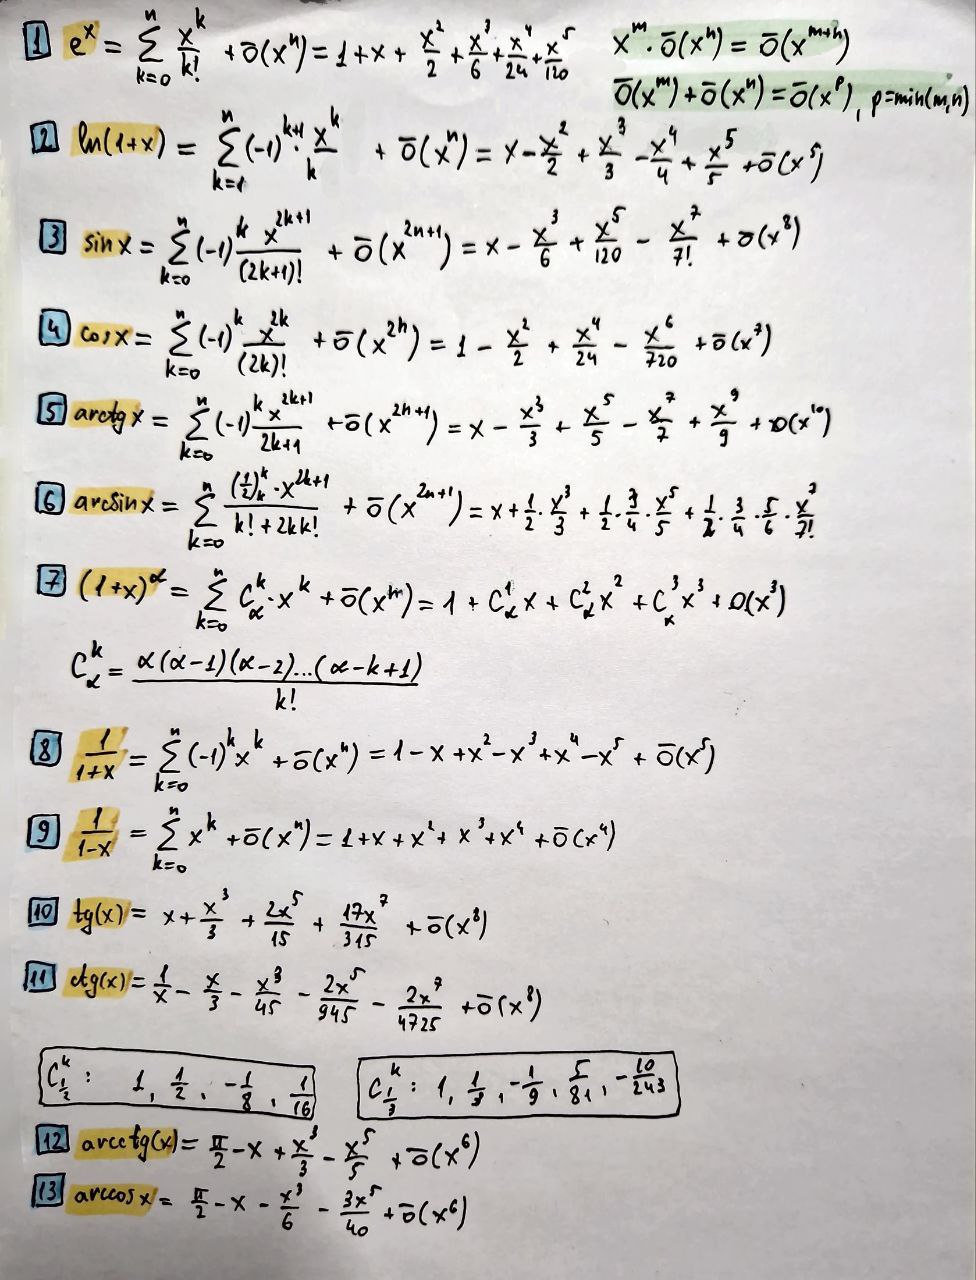 1 e^x = Σ_{k=0}^{n} x^k/k! + ō(x^n) = 1 + x + x^2/2 + x^3/6 + x^4/24 + x^5/120
x^m · ō(x^n) = ō(x^{m+n})
ō(x^m) + ō(x^n) = ō(x^p), p=min(m,n)
2 ln(1+x) = Σ_{k=1}^{n} (-1)^{k+1} · x^k/k + ō(x^n) = x - x^2/2 + x^3/3 - x^4/4 + x^5/5 + ō(x^5)
3 sin x = Σ_{k=0}^{n} (-1)^k x^{2k+1}/(2k+1)! + ō(x^{2n+1}) = x - x^3/6 + x^5/120 - x^7/7! + ō(x^8)
4 cos x = Σ_{k=0}^{n} (-1)^k x^{2k}/(2k)! + ō(x^{2n}) = 1 - x^2/2 + x^4/24 - x^6/720 + ō(x^7)
5 arctg x = Σ_{k=0}^{n} (-1)^k x^{2k+1}/2k+1 + ō(x^{2n+1}) = x - x^3/3 + x^5/5 - x^7/7 + x^9/9 + o(x^10)
6 arcsin x = Σ_{k=0}^{n} (1/2)_k^k · x^{2k+1}/k! + 2kk! + ō(x^{2n+1}) = x + 1/2 · x^3/3 + 1/2 · 3/4 · x^5/5 + 1/2 · 3/4 · 5/6 · x^7/7!
7 (1+x)^α = Σ_{k=0}^{n} C_α^k · x^k + ō(x^n) = 1 + C_α^1 x + C_α^2 x^2 + C_α^3 x^3 + o(x^3)
C_α^k = α(α-1)(α-2)...(α-k+1)/k!
8 1/1+x = Σ_{k=0}^{n} (-1)^k x^k + ō(x^n) = 1 - x + x^2 - x^3 + x^4 - x^5 + ō(x^5)
9 1/1-x = Σ_{k=0}^{n} x^k + ō(x^n) = 1 + x + x^2 + x^3 + x^4 + ō(x^4)
10 tg(x) = x + x^3/3 + 2x^5/15 + 17x^7/315 + ō(x^8)
11 ctg(x) = 1/x - x/3 - x^3/45 - 2x^5/945 - 2x^7/4725 + ō(x^8)
C_{1/2}^k : 1, 1/2, -1/8, 1/16
C_{1/3}^k : 1, 1/3, -1/9, 5/81, -10/243
12 arcctg(x) = π/2 - x + x^3/3 - x^5/5 + ō(x^6)
13 arccos x = π/2 - x - x^3/6 - 3x^5/40 + ō(x^6)